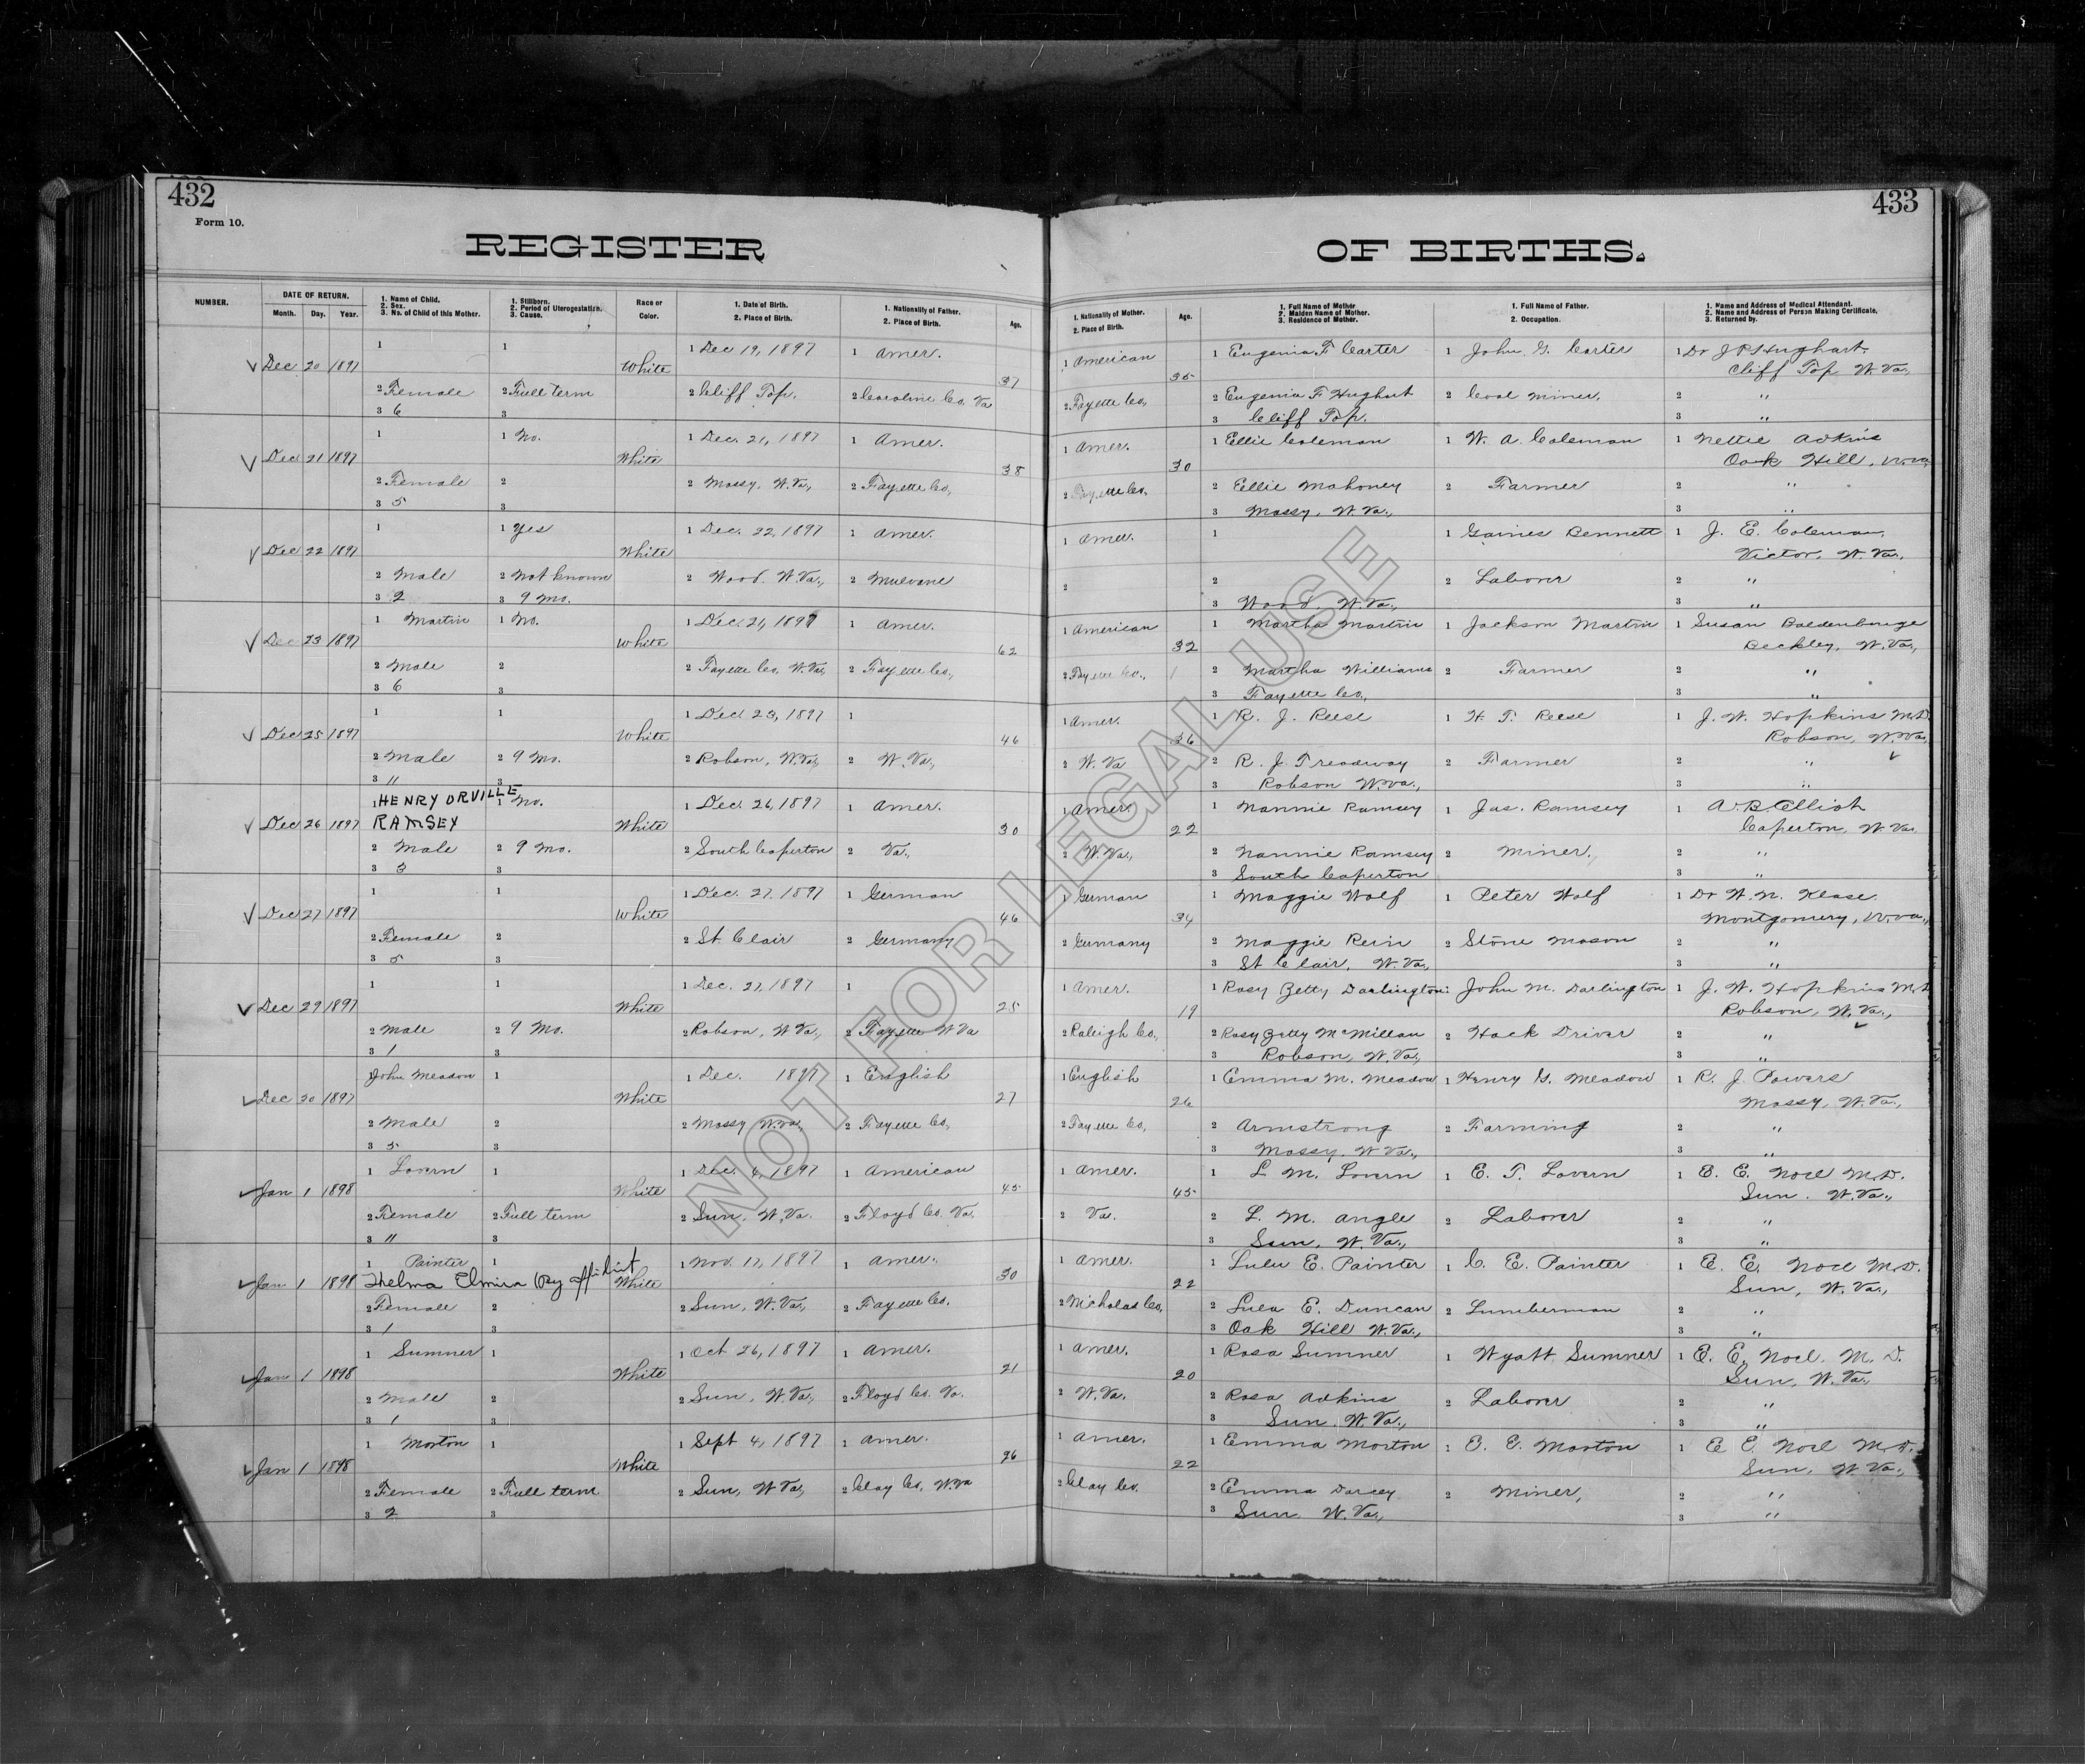 432
Form 10.
REGISTER
433
OF BIRTHS.
NUMBER.
DATE OF RETURN.
Month. Day. Year.
1. Name of Child.
2. Sex.
3. No. of Child of this Mother.
1. Stillborn.
2. Period of Uterogestation.
3. Cause.
Race or
Color.
1. Date of Birth.
2. Place of Birth.
1. Nationality of Father.
2. Place of Birth.
Age.
1. Nationality of Mother.
2. Place of Birth.
Age.
1. Full Name of Mother
2. Maiden Name of Mother.
3. Residence of Mother.
1. Full Name of Father.
2. Occupation.
1. Name and Address of Medical Attendant.
2. Name and Address of Person Making Certificate.
3. Returned by.
1 1 1 Dec 19, 1897 1 Amer. 1 American 1 Eugenia F Carter 1 John G. Carter 1 Dr J P Hughart.
Dec 20 1897 White 37 35 Cliff Top W. Va.,
2 Female 2 Full term 2 Cliff Top. 2 Caroline Co. Va 2 Fayette Co., 2 Eugenia F Hughart 2 Coal miner. 2 "
3 6 3 3 Cliff Top. 3 "
1 1 No. 1 Dec. 21, 1897 1 Amer. 1 Amer. 1 Ellie Coleman 1 W. A. Coleman 1 Nettie Adkins
Dec 21 1897 White 38 30 Oak Hill, W. Va
2 Female 2 2 Mossy, W. Va., 2 Fayette Co., 2 Fayette Co. 2 Ellie Mahoney 2 Farmer 2 "
3 5 3 3 Mossy, W. Va., 3 "
1 1 Yes 1 Dec. 22, 1897 1 Amer. 1 Amer. 1 1 Gaines Bennett 1 J. E. Coleman,
Dec 22 1897 White Victor, W. Va.,
2 Male 2 Not known 2 Wood, W. Va., 2 Mulvane 2 2 2 Laborer 2 "
3 2 3 9 Mo. 3 Wood, W. Va., 3 "
1 Martin 1 No. 1 Dec. 21, 1897 1 Amer. 1 American 1 Martha Martin 1 Jackson Martin 1 Susan
Dec 23 1897 White 62 32 Beckley, W. Va.,
2 Male 2 2 Fayette Co. W. Va., 2 Fayette Co., 2 Fayette Co., 2 Martha Williams 2 Farmer 2 "
3 6 3 3 Fayette Co., 3 "
1 1 1 Dec. 23, 1897 1 1 Amer. 1 R. J. Reese 1 H T. Reese 1 J. W. Hopkins M.D.
Dec 25 1897 White 46 36 Robson, W. Va.,
2 Male 2 9 Mo. 2 Robson, W. Va., 2 W. Va., 2 W. Va 2 R. J. Treadway 2 Farmer 2 "
3 11 3 3 Robson W. Va., 3 "
1 HENRY ORVILLE 1 No. 1 Dec. 26, 1897 1 Amer. 1 Amer. 1 Nannie Ramsey 1 Jas. Ramsey 1 A. B Elliot
Dec 26 1897 RAMSEY White 30 22 Caperton, W. Va.
2 Male 2 9 Mo. 2 South Caperton 2 Va., 2 W. Va., 2 Nannie Ramsey 2 Miner. 2 "
3 3 3 3 South Caperton 3 "
1 1 1 Dec. 27, 1897 1 German 1 German 1 Maggie Wolf 1 Peter Wolf 1 Dr W. N. Klase.
Dec 27 1897 White 46 34 Montgomery, W. Va.,
2 Female 2 2 St. Clair 2 Germany 2 Germany 2 Maggie Rein 2 Stone Mason 2 "
3 5 3 3 St Clair, W. Va., 3 "
1 1 1 Dec. 27, 1897 1 1 Amer. 1 Rosy Betty Darlington 1 John M. Darlington 1 J. W. Hopkins M.D
Dec 29 1897 White 25 19 Robson, W. Va.,
2 Male 2 9 Mo. 2 Robson, W Va., 2 Fayette W Va 2 Raleigh Co., 2 Rosy Betty McMillan 2 Hack Driver 2 "
3 1 3 3 Robson, W. Va., 3 "
1 John Meadow 1 1 Dec. 1897 1 English 1 English 1 Emma M. Meadow 1 Henry G. Meadow 1 R. J. Powers
Dec 30 1897 White 27 26 Mossy, W. Va.,
2 Male 2 2 Mossy W. Va., 2 Fayette Co., 2 Fayette Co., 2 Armstrong 2 Farming 2 "
3 5 3 3 Mossy, W. Va., 3 "
1 Lovern 1 1 Dec. 4, 1897 1 American 1 Amer. 1 L M. Lovern 1 E. T. Lovern 1 E. E. Noel M.D.
Jan 1 1898 White 45 45 Sun. W. Va.,
2 Female 2 Full term 2 Sun, W. Va. 2 Floyd Co. Va. 2 Va. 2 L. M. Angle 2 Laborer 2 "
3 11 3 3 Sun, W. Va., 3 "
1 Painter 1 1 Nov. 17, 1897 1 Amer. 1 Amer. 1 Lulu E. Painter 1 C. E. Painter 1 E. E. Noel M.D.
Jan 1 1898 Thelma Elmira by affidavit White 30 22 Sun, W. Va.,
2 Female 2 2 Sun, W. Va., 2 Fayette Co. 2 Nicholas Co., 2 Lula E. Duncan 2 Lumberman 2 "
3 1 3 3 Oak Hill W. Va., 3 "
1 Sumner 1 1 Oct 26, 1897 1 Amer. 1 Amer. 1 Rosa Sumner 1 Wyatt Sumner 1 E. E. Noel. M. D.
Jan 1 1898 White 21 20 Sun, W. Va.,
2 Male 2 2 Sun, W. Va., 2 Floyd Co. Va. 2 W. Va. 2 Rosa Adkins 2 Laborer 2 "
3 1 3 3 Sun. W. Va., 3 "
1 Morton 1 1 Sept 4, 1897 1 Amer. 1 Amer. 1 Emma Morton 1 E. E. Morton 1 E E. Noel M.D.
Jan 1 1898 White 26 22 Sun, W. Va.,
2 Female 2 Full term 2 Sun, W Va., 2 Clay Co, W. Va 2 Clay Co. 2 Emma Darcey 2 Miner, 2 "
3 2 3 3 Sun. W. Va., 3 "
NOT FOR LEGAL USE